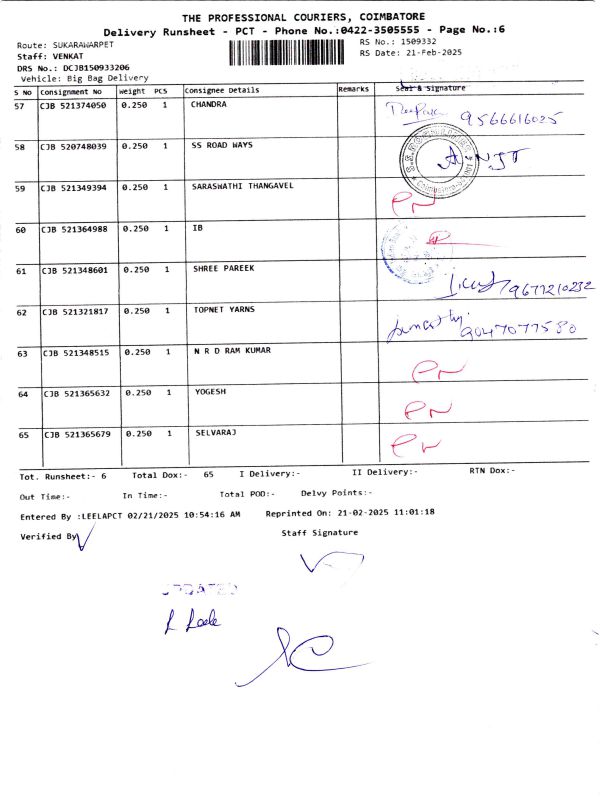 THE PROFESSIONAL COURIERS, COIMBATORE
Delivery Runsheet - PCT - Phone No.:0422-3505555 - Page No.:6
Route: SUKARAWARPET RS No.: 1509332
Staff: VENKAT RS Date: 21-Feb-2025
DRS No.: DCJB150933206
Vehicle: Big Bag Delivery
S No Consignment No Weight PCS Consignee Details Remarks Seal & Signature
57 CJB 521374050 0.250 1 CHANDRA 9566616025
58 CJB 520748039 0.250 1 SS ROAD WAYS
59 CJB 521349394 0.250 1 SARASWATHI THANGAVEL
60 CJB 521364988 0.250 1 IB
61 CJB 521348601 0.250 1 SHREE PAREEK 9677210232
62 CJB 521321817 0.250 1 TOPNET YARNS 9047077580
63 CJB 521348515 0.250 1 N R D RAM KUMAR
64 CJB 521365632 0.250 1 YOGESH
65 CJB 521365679 0.250 1 SELVARAJ
Tot. Runsheet:- 6 Total Dox:- 65 I Delivery:- II Delivery:- RTN Dox:-
Out Time:- In Time:- Total POD:- Delvy Points:-
Entered By :LEELAPCT 02/21/2025 10:54:16 AM Reprinted On: 21-02-2025 11:01:18
Verified By Staff Signature
UPDATED